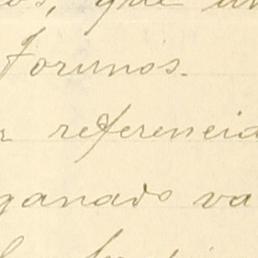 os, que un
Forunos.
r referencia
ganado va